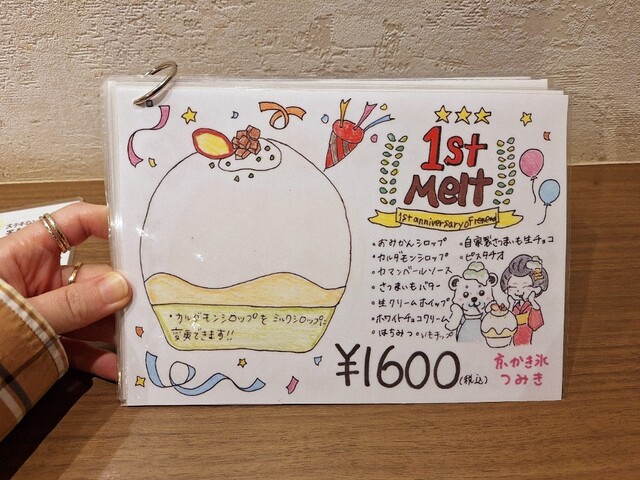 1st
Melt
1st anniversary of renewal
・おみかんシロップ
・カルダモンシロップ
・カマンベールソース
・さつまいもバター
・生クリームホイップ
・ホワイトチョコクリーム
・はちみつ ・いもチップ
・自家製さつまいも生チョコ
・ピスタチオ
・カルダモンシロップを ミルクシロップに
変更できます!!
¥1600(税込)
京かき氷
つみき